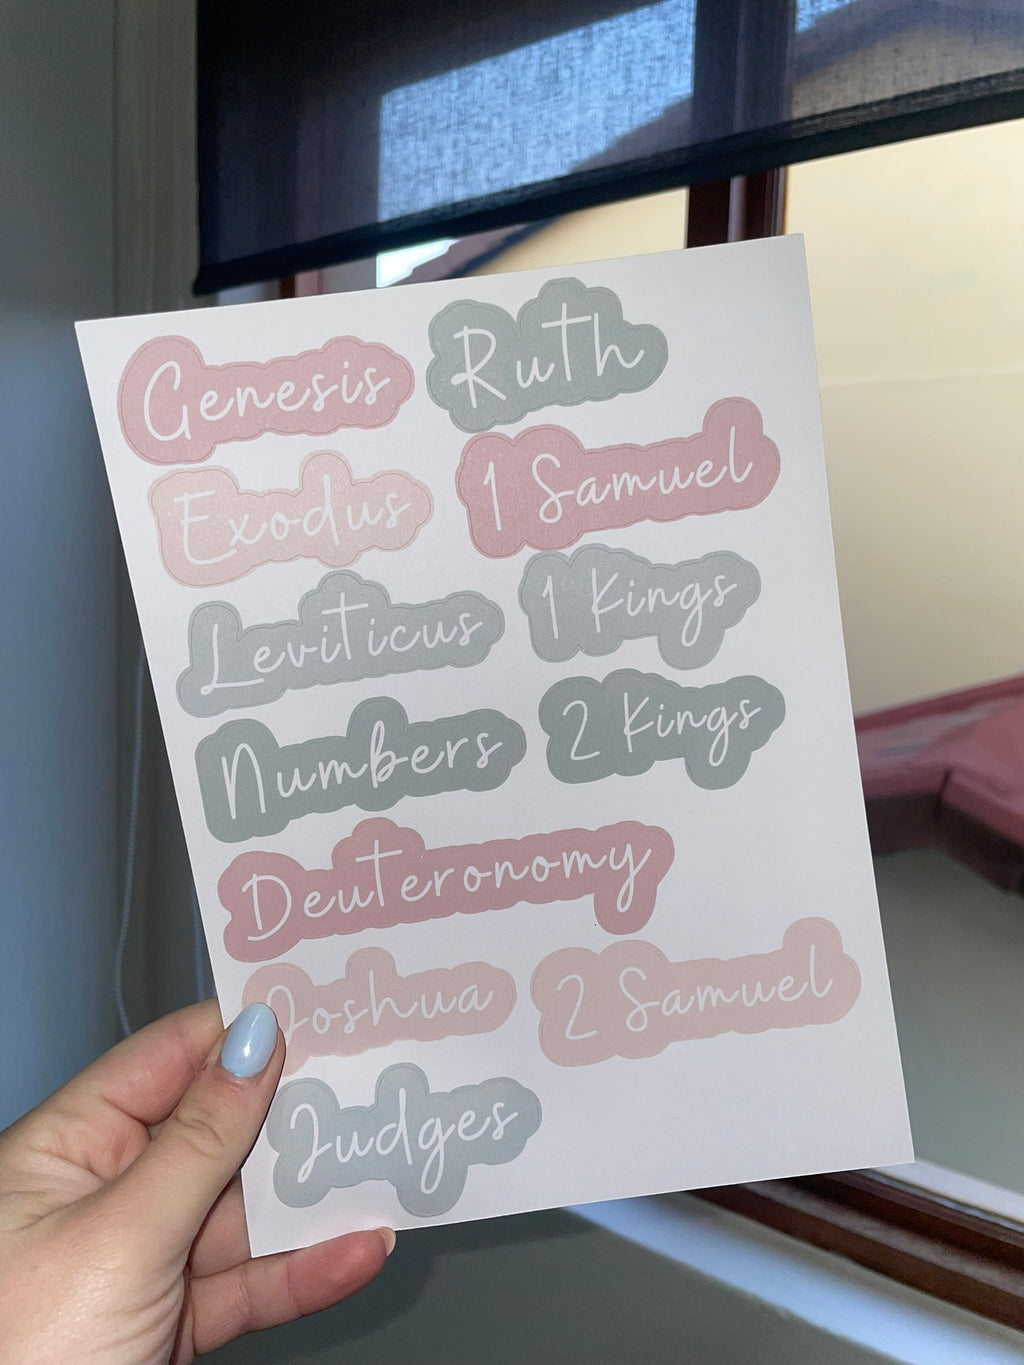 Genesis
Exodus
Leviticus
Numbers
Deuteronomy
Joshua
Judges
Ruth
1 Samuel
1 Kings
2 Kings
2 Samuel